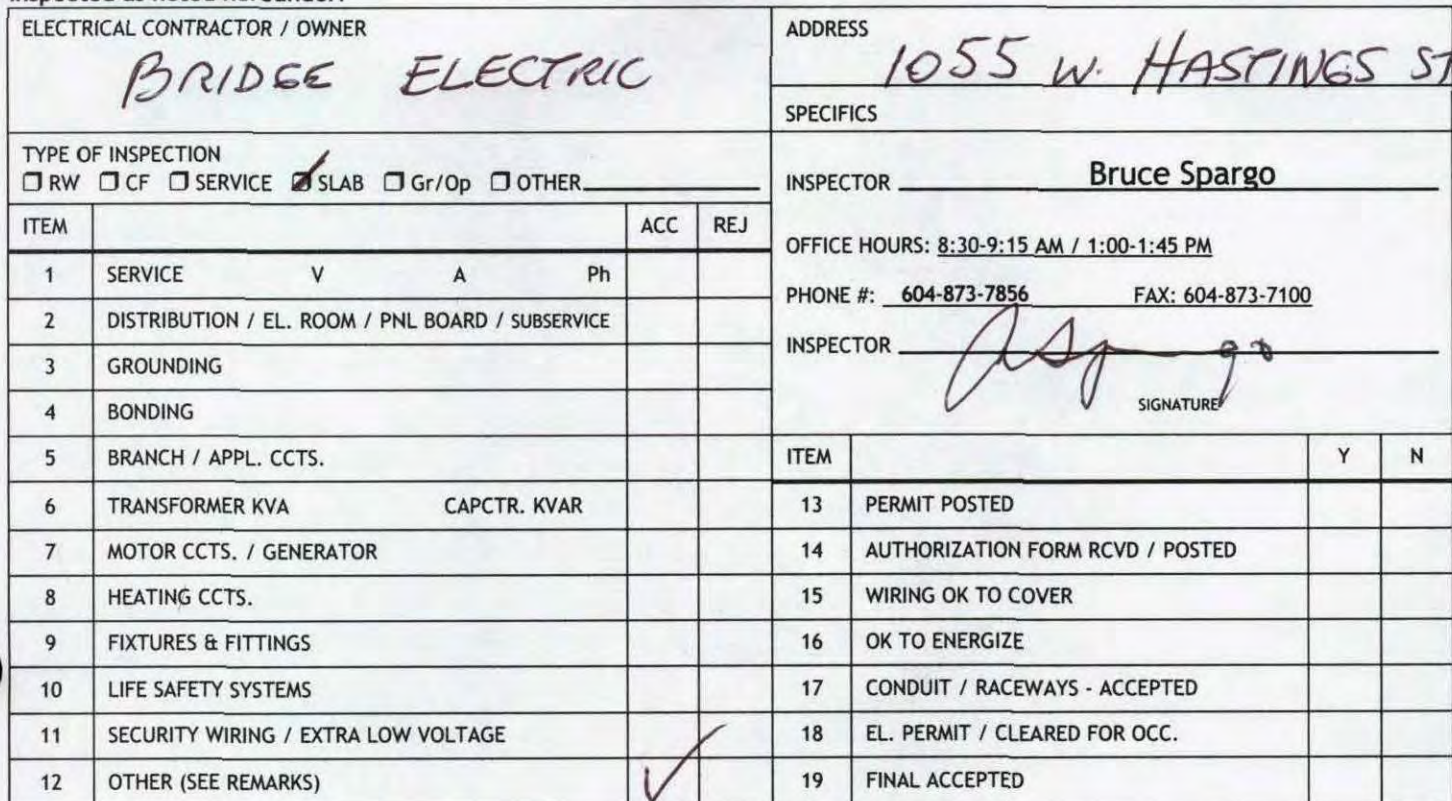 ELECTRICAL CONTRACTOR / OWNER
BRIDGE ELECTRIC
TYPE OF INSPECTION
RW CF SERVICE SLAB Gr/Op OTHER
ITEM ACC REJ
1 SERVICE V A Ph
2 DISTRIBUTION / EL. ROOM / PNL BOARD / SUBSERVICE
3 GROUNDING
4 BONDING
5 BRANCH / APPL. CCTS.
6 TRANSFORMER KVA CAPCTR. KVAR
7 MOTOR CCTS. / GENERATOR
8 HEATING CCTS.
9 FIXTURES & FITTINGS
10 LIFE SAFETY SYSTEMS
11 SECURITY WIRING / EXTRA LOW VOLTAGE
12 OTHER (SEE REMARKS) ✓
ADDRESS
1055 W. HASTINGS ST
SPECIFICS
INSPECTOR Bruce Spargo
OFFICE HOURS: 8:30-9:15 AM / 1:00-1:45 PM
PHONE #: 604-873-7856 FAX: 604-873-7100
INSPECTOR
SIGNATURE
ITEM Y N
13 PERMIT POSTED
14 AUTHORIZATION FORM RCVD / POSTED
15 WIRING OK TO COVER
16 OK TO ENERGIZE
17 CONDUIT / RACEWAYS - ACCEPTED
18 EL. PERMIT / CLEARED FOR OCC.
19 FINAL ACCEPTED